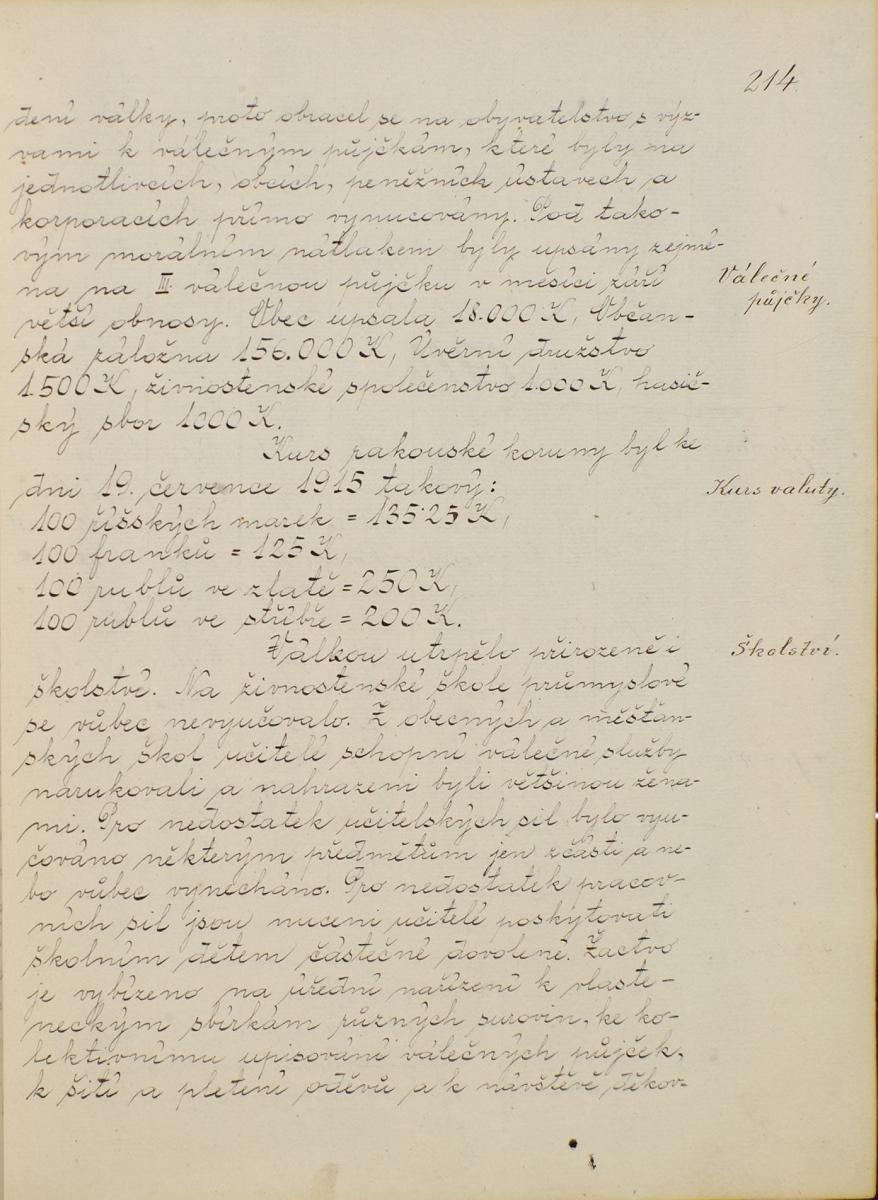 214
dení války, proto obracel se na obyvatelstvo s výz-
vami k válečným půjčkám, které byly na
jednotlivcích, obcích, peněžních ústavech a
korporacích přímo vynucovány. Pod tako-
vým morálním nátlakem byly upsány zejmé-
na na III. válečnou půjčku v měsíci září
Válečné
půjčky.
větší obnosy. Obec upsala 18.000 K, Občan-
ská záložna 156.000 K, Úvěrní družstvo
1.500 K, živnostenské společenstvo 1.000 K, hasič-
ský sbor 1000 K.
Kurs rakouské koruny byl ke
dni 19. července 1915 takový:
Kurs valuty.
100 říšských marek = 135·25 K,
100 franků = 125 K,
100 rublů ve zlatě = 250 K,
100 rublů ve stříbře = 200 K.
Válkou utrpělo přirozeně i
Školství.
školství. Na živnostenské škole průmyslové
se vůbec nevyučovalo. Z obecných a měšťan-
ských škol učitelé schopní válečné služby
narukovali a nahrazeni byli většinou žena-
mi. Pro nedostatek učitelských sil bylo vyu-
čováno některým předmětům jen zčásti a ne-
bo vůbec vynecháno. Pro nedostatek pracov-
ních sil jsou nuceni učitelé poskytovati
školním dětem částečné dovolené. Žactvo
je vybízeno na úřední nařízení k vlaste-
neckým sbírkám různých surovin, ke ko-
lektivnímu upisování válečných půjček,
k šití a pletení oděvů a k návštěvě děkov-